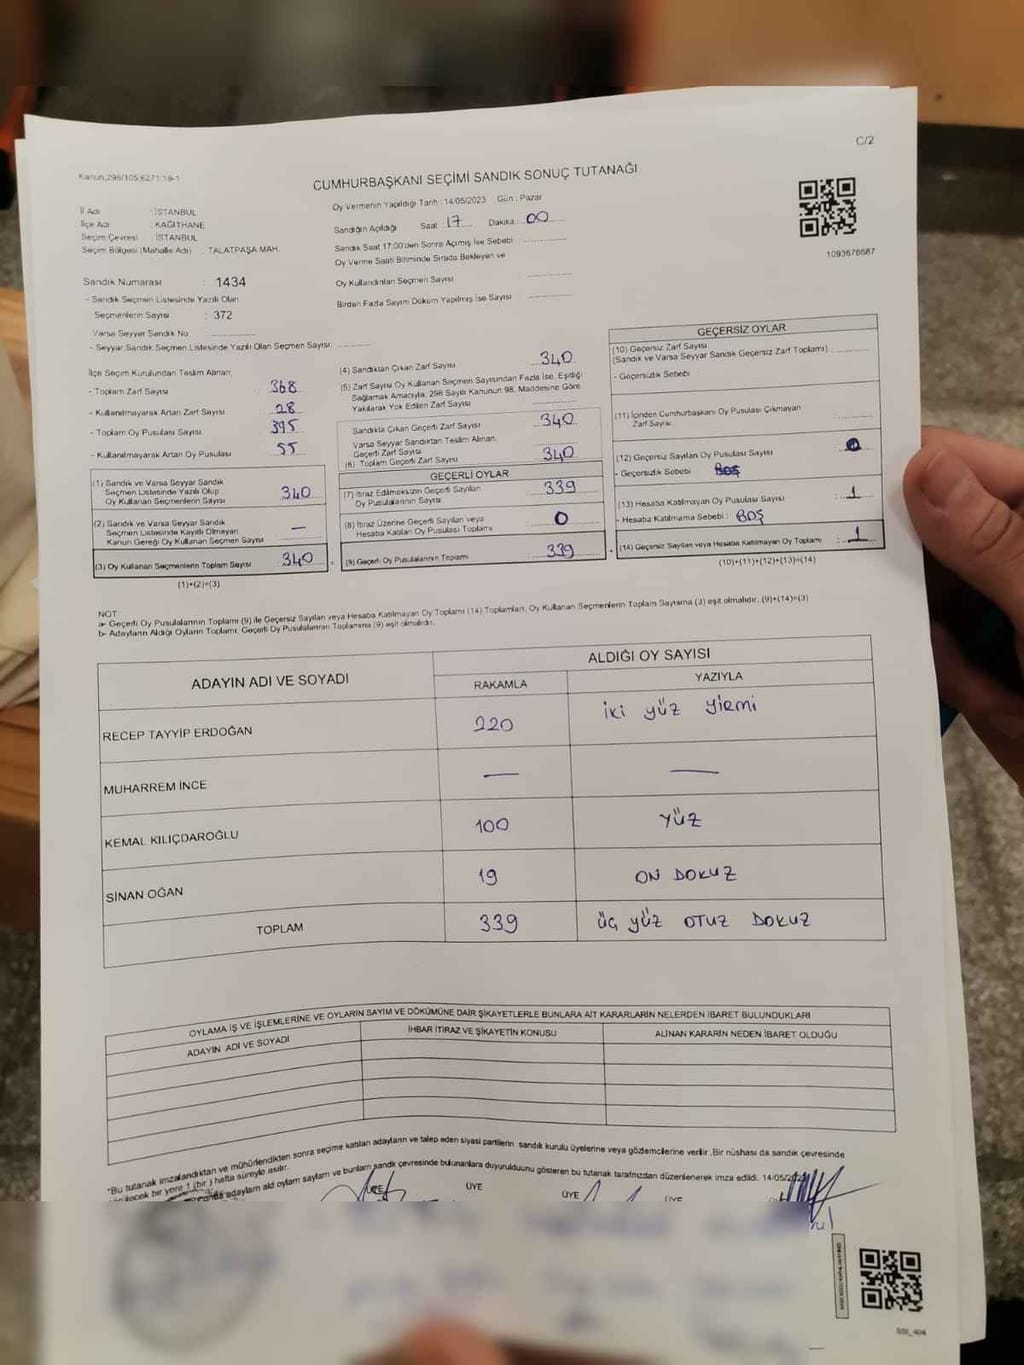 C/2
Kanun;298/105;6271/19-1
CUMHURBAŞKANI SEÇİMİ SANDIK SONUÇ TUTANAĞI
İl Adı : İSTANBUL
İlçe Adı : KAĞITHANE
Seçim Çevresi : İSTANBUL
Seçim Bölgesi (Mahalle Adı) : TALATPAŞA MAH.
Oy Vermenin Yapıldığı Tarih : 14/05/2023 Gün : Pazar
Sandığın Açıldığı Saat : 17 Dakika : 00
Sandık Saat 17:00'den Sonra Açımış İse Sebebi :
Oy Verme Saati Bitiminde Sırada Bekleyen ve
Oy Kullandırılan Seçmen Sayısı
Birden Fazla Sayım Döküm Yapılmış İse Sayısı
1093676687
Sandık Numarası : 1434
- Sandık Seçmen Listesinde Yazılı Olan
Seçmenlerin Sayısı : 372
Varsa Seyyar Sandık No
- Seyyar Sandık Seçmen Listesinde Yazılı Olan Seçmen Sayısı:
İlçe Seçim Kurulundan Teslim Alınan;
- Toplam Zarf Sayısı 368
- Kullanılmayarak Artan Zarf Sayısı 28
- Toplam Oy Pusulası Sayısı 395
- Kullanılmayarak Artan Oy Pusulası 55
(1) Sandık ve Varsa Seyyar Sandık
Seçmen Listesinde Yazılı Olup
Oy Kullanan Seçmenlerin Sayısı 340
(2) Sandık ve Varsa Seyyar Sandık
Seçmen Listesinde Kayıtlı Olmayan
Kanun Gereği Oy Kullanan Seçmen Sayısı —
(3) Oy Kullanan Seçmenlerin Toplam Sayısı 340
(1)+(2)=(3)
(4) Sandıktan Çıkan Zarf Sayısı 340
(5) Zarf Sayısı Oy Kullanan Seçmen Sayısından Fazla İse, Eşitliği
Sağlamak Amacıyla; 298 Sayılı Kanunun 98. Maddesine Göre
Yakılarak Yok Edilen Zarf Sayısı
Sandıkta Çıkan Geçerli Zarf Sayısı 340
Varsa Seyyar Sandıktan Teslim Alınan
Geçerli Zarf Sayısı
(6) Toplam Geçerli Zarf Sayısı 340
GEÇERLİ OYLAR
(7) İtiraz Edilmeksizin Geçerli Sayılan
Oy Pusulasının Sayısı 339
(8) İtiraz Üzerine Geçerli Sayılan veya
Hesaba Katılan Oy Pusulası Toplamı 0
(9) Geçerli Oy Pusulalarının Toplamı 339
GEÇERSİZ OYLAR
(10) Geçersiz Zarf Sayısı
(Sandık ve Varsa Seyyar Sandık Geçersiz Zarf Toplamı) :
- Geçersizlik Sebebi :
(11) İçinden Cumhurbaşkanı Oy Pusulası Çıkmayan
Zarf Sayısı
(12) Geçersiz Sayılan Oy Pusulası Sayısı
- Geçersizlik Sebebi
(13) Hesaba Katılmayan Oy Pusulası Sayısı 1
- Hesaba Katılmama Sebebi : BOŞ
(14) Geçersiz Sayılan veya Hesaba Katılmayan Oy Toplamı : 1
(10)+(11)+(12)+(13)=(14)
NOT
a- Geçerli Oy Pusulalarının Toplamı (9) ile Geçersiz Sayılan veya Hesaba Katılmayan Oy Toplamı (14) Toplamları, Oy Kullanan Seçmenlerin Toplam Sayısına (3) eşit olmalıdır. (9)+(14)=(3)
b- Adayların Aldığı Oyların Toplamı, Geçerli Oy Pusulalarının Toplamına (9) eşit olmalıdır.
ADAYIN ADI VE SOYADI
ALDIĞI OY SAYISI
RAKAMLA YAZIYLA
RECEP TAYYİP ERDOĞAN 220 iki yüz yiRmi
MUHARREM İNCE — —
KEMAL KILIÇDAROĞLU 100 YÜZ
SİNAN OĞAN 19 ON DOKUZ
TOPLAM 339 üç yüz OTUZ DOKUZ
OYLAMA İŞ VE İŞLEMLERİNE VE OYLARIN SAYIM VE DÖKÜMÜNE DAİR ŞİKAYETLERLE BUNLARA AİT KARARLARIN NELERDEN İBARET BULUNDUKLARI
ADAYIN ADI VE SOYADI İHBAR İTİRAZ VE ŞİKAYETİN KONUSU ALINAN KARARIN NEDEN İBARET OLDUĞU
"Bu tutanak imzalandıktan ve mühürlendikten sonra seçime katılan adayların ve talep eden siyasi partilerin sandık kurulu üyelerine veya gözlemcilerine verilir .Bir nüshası da sandık çevresinde
bir yere 1 (bir ) hafta süreyle asılır.
adayların aldı oyların sayların ve bunların sandık çevresinde bulunanlara duyurulduunu gösteren bu tutanak tarafımızdan düzenlenerek imza edildi. 14/05/2023
ÜYE ÜYE ÜYE ÜYE